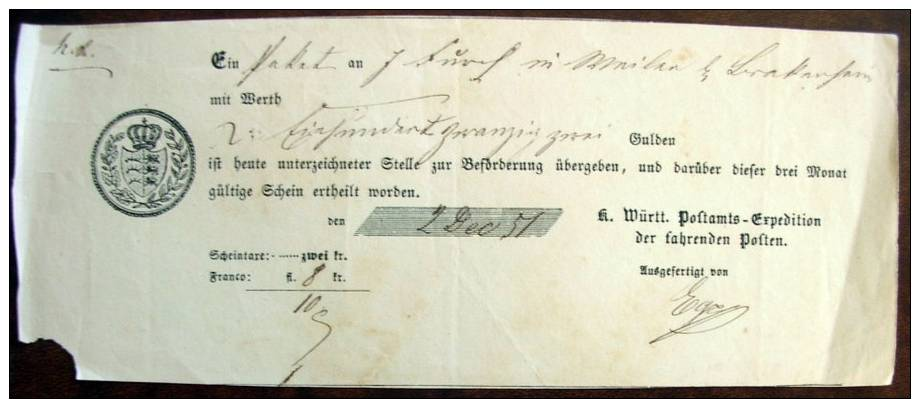 Ein Paket an J Furch in Weiler b/ Brakenheim
mit Werth
Einhundert zwanzig zwei Gulden
ist heute unterzeichneter Stelle zur Beförderung übergeben, und darüber dieser drei Monat
gültige Schein ertheilt worden.
den 2 Dec 51
K. Württ. Postamts-Expedition
der fahrenden Posten.
Scheintaxe: ...... zwei kr.
Franco: fl. 8 kr.
Ausgefertigt von
10